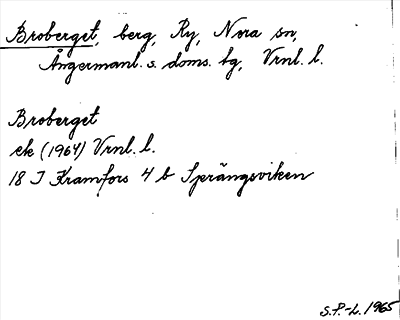 Broberget, berg, Ry, Nora sn,
Ångermanl. s. doms. tg, Vrnl. l.
Broberget
ek (1964) Vrnl. l.
18 J Kramfors 4 b Sprängsviken
S.P.-L. 1965